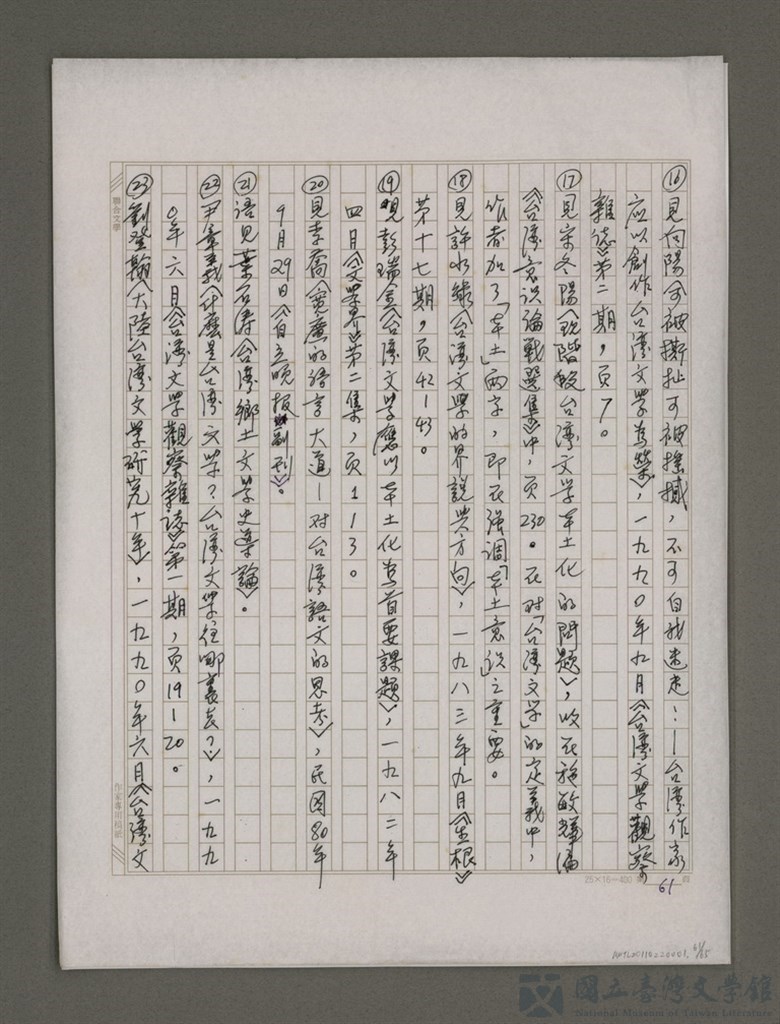 ⑯見向陽〈可被撕扯可被搖撼，不可自我迷走！—台灣作家
應以創作台灣文學為榮〉，一九九〇年九月《台灣文學觀察
雜誌》第二期，頁7。
⑰見宋冬陽〈現階段台灣文學本土化的問題〉，收在施敏輝編
《台灣意識論戰選集》中，頁230。在對「台灣文學」的定義中，
作者加了「本土」兩字，即在強調「本土意識」之重要。
⑱見許水綠〈台灣文學的界說與方向〉，一九八三年九月《生根》
第十七期，頁42—43。
⑲見彭瑞金〈台灣文學應以本土化為首要課題〉，一九八二年
四月《文學界》第二集，頁113。
⑳見李喬〈寬廣的語言大道—对台灣語文的思考〉，民国80年
9月29日《自立晚报》副刊。
㉑語見葉石濤〈台灣鄉土文學史導論〉。
㉒尹章義〈什麼是台灣文學？台灣文學往哪裏去？〉，一九九
〇年六月《台灣文學觀察雜誌》第一期，頁19—20。
㉓劉登翰〈大陸台灣文學研究十年〉，一九九〇年六月《台灣文
聯合文學
作家專用稿紙
25×16＝400
61
NMTL20110220001, 61/65
國立臺灣文學館
National Museum of Taiwan Literature